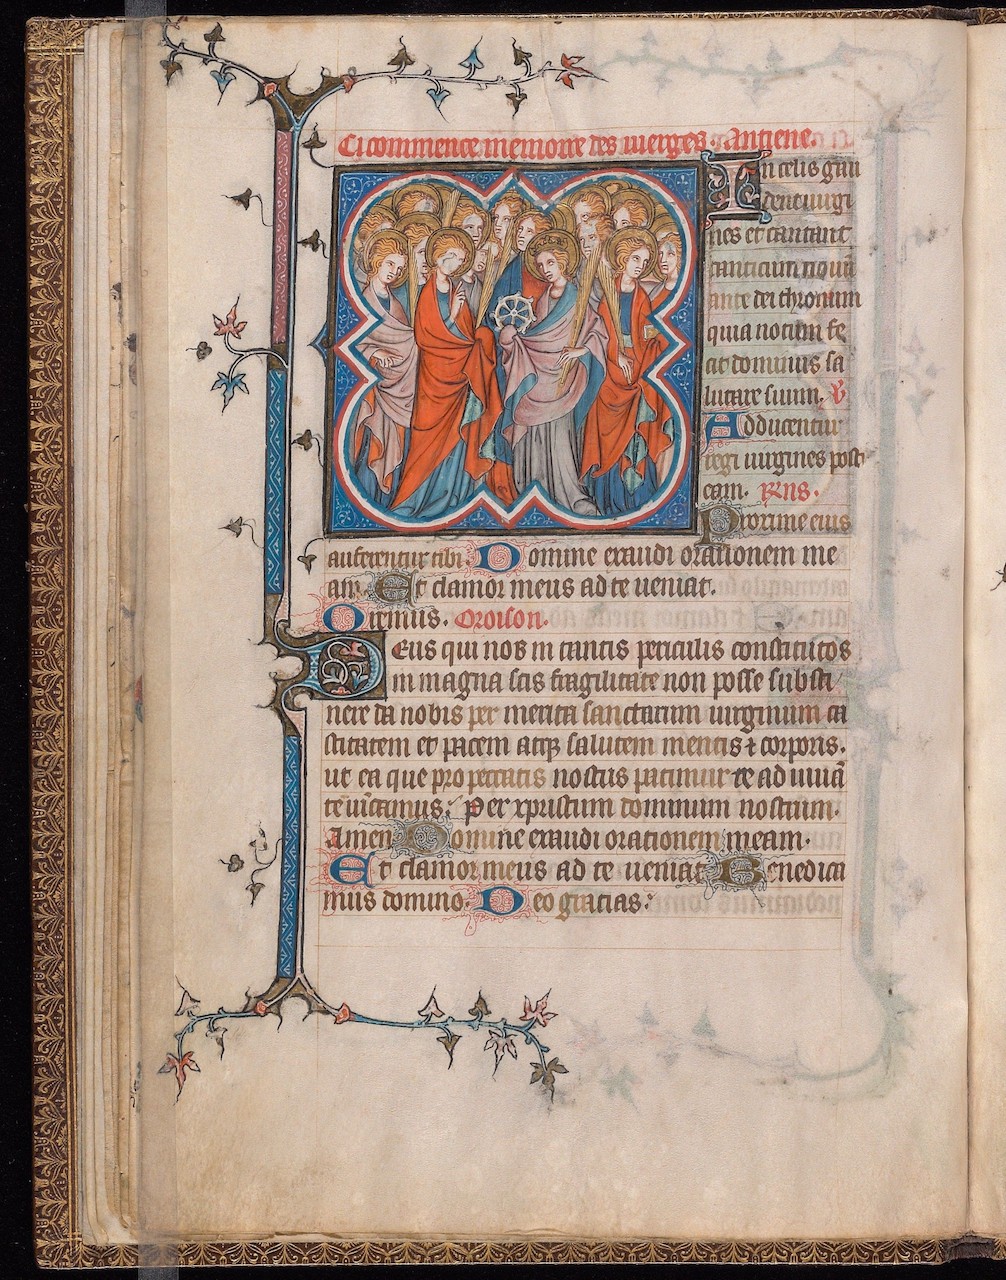 Ci commence memoire des uierges. Antiene.
In celis gau
dent uirgi
nes et cantant
canticum nouū
ante dei thronum
quia notum fe
cit dominus sa
lutare suum. V̄
Adducentur
regi uirgines post
eam. R̄ns.
Proxime eius
auferentur tibi. Domine exaudi orationem me
am. Et clamor meus ad te ueniat.
Oremus. Oroison.
Deus qui nos in tantis periculis constitutos
in magna scis fragilitate non posse substi
nere da nobis per merita sanctarum uirginum ca
stitatem et pacem atqꝫ salutem mentis ⁊ corporis.
ut ea que pro peccatis nostris patimur te adiuuā
te uīcamus. Per xpristum dominum nostrum.
Amen Domine exaudi orationem meam.
Et clamor meus ad te ueniat Benedica
mus domino. Deo gracias.